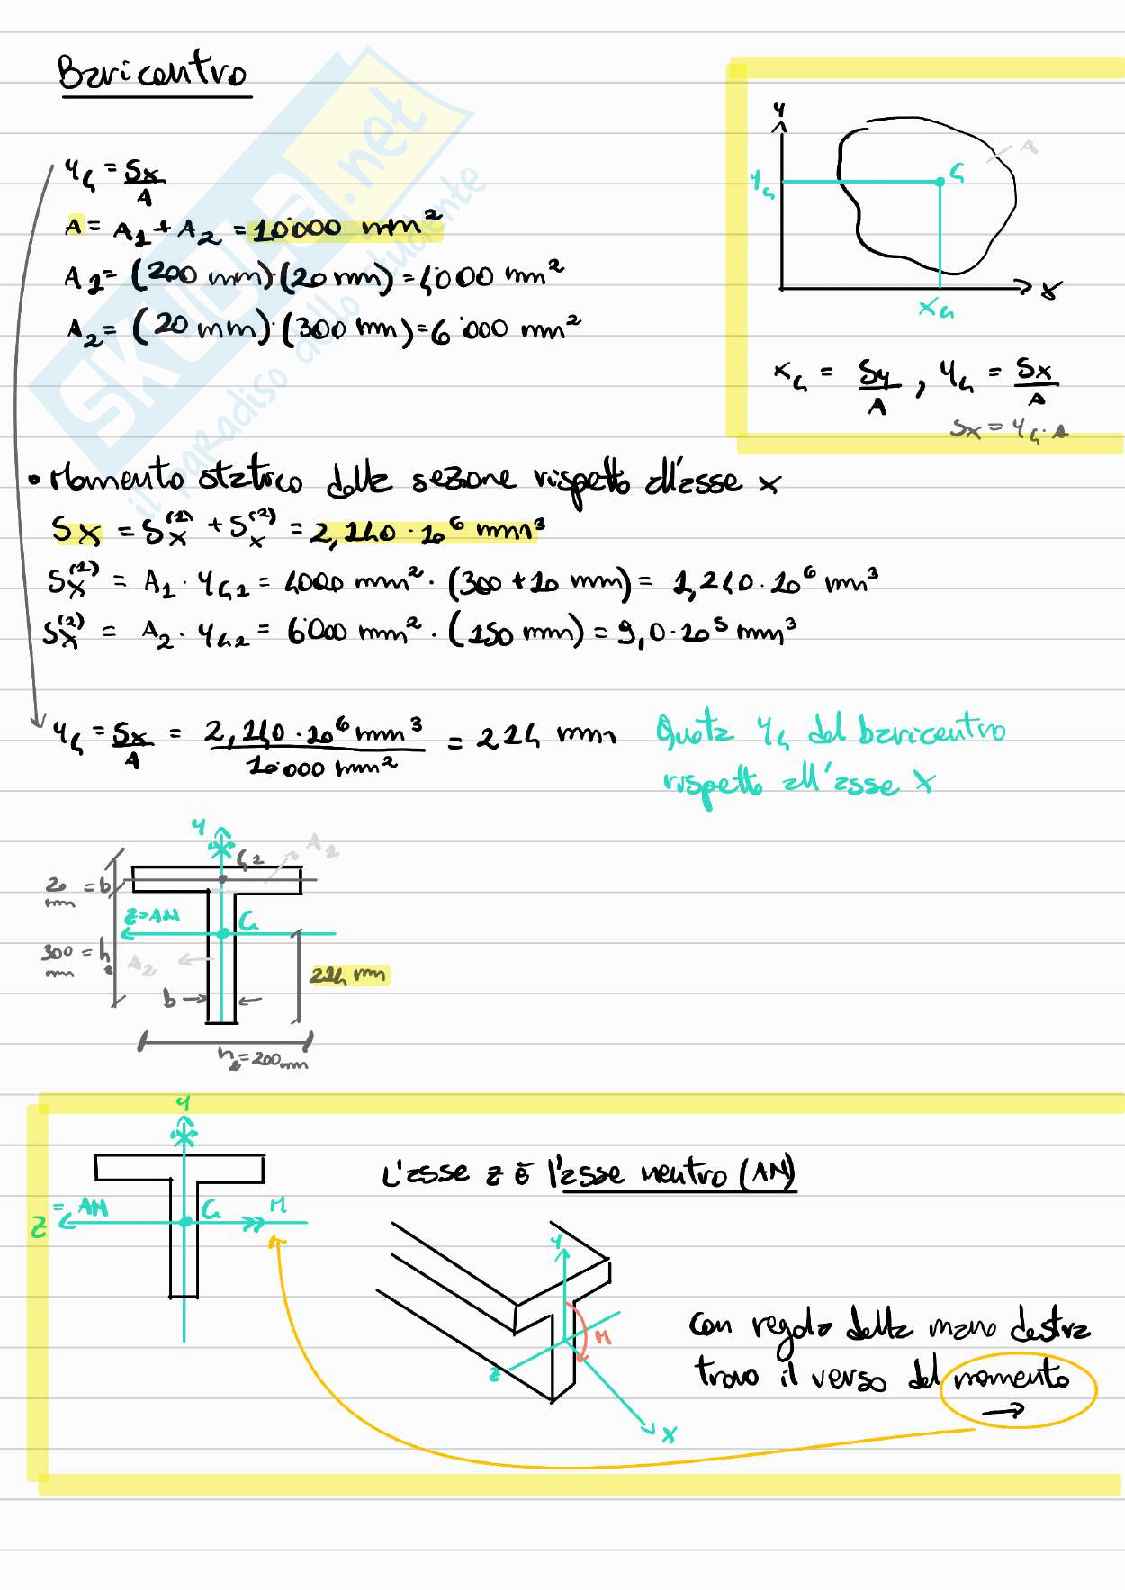 Baricentro
y_G = Sx/A
A = A₁ + A₂ = 10'000 mm²
A₁ = (200 mm)·(20 mm) = 4000 mm²
A₂ = (20 mm)·(300 mm) = 6'000 mm²
y
A
y_G
G
x
x_G
x_G = Sy/A , y_G = Sx/A
Sx = y_G · A
• Momento statico della sezione rispetto all'asse x
Sx = Sx⁽¹⁾ + Sx⁽²⁾ = 2,140 · 10⁶ mm³
Sx⁽¹⁾ = A₁ · y_G1 = 4000 mm² · (300 + 10 mm) = 1,240 · 10⁶ mm³
Sx⁽²⁾ = A₂ · y_G2 = 6'000 mm² · (150 mm) = 9,0 · 10⁵ mm³
y_G = Sx/A = 2,140 · 10⁶ mm³ / 10'000 mm² = 214 mm
Quota y_G del baricentro
rispetto all'asse x
y
G₁
A₁
20 mm = b
z=AN
G
300 mm = h₁
A₂
b
214 mm
h₂ = 200 mm
y
L'asse z è l'asse neutro (AN)
z = AN
G
M
y
M
z
x
con regola della mano destra
trovo il verso del momento
SKUOLA.net
il paradiso dello studente